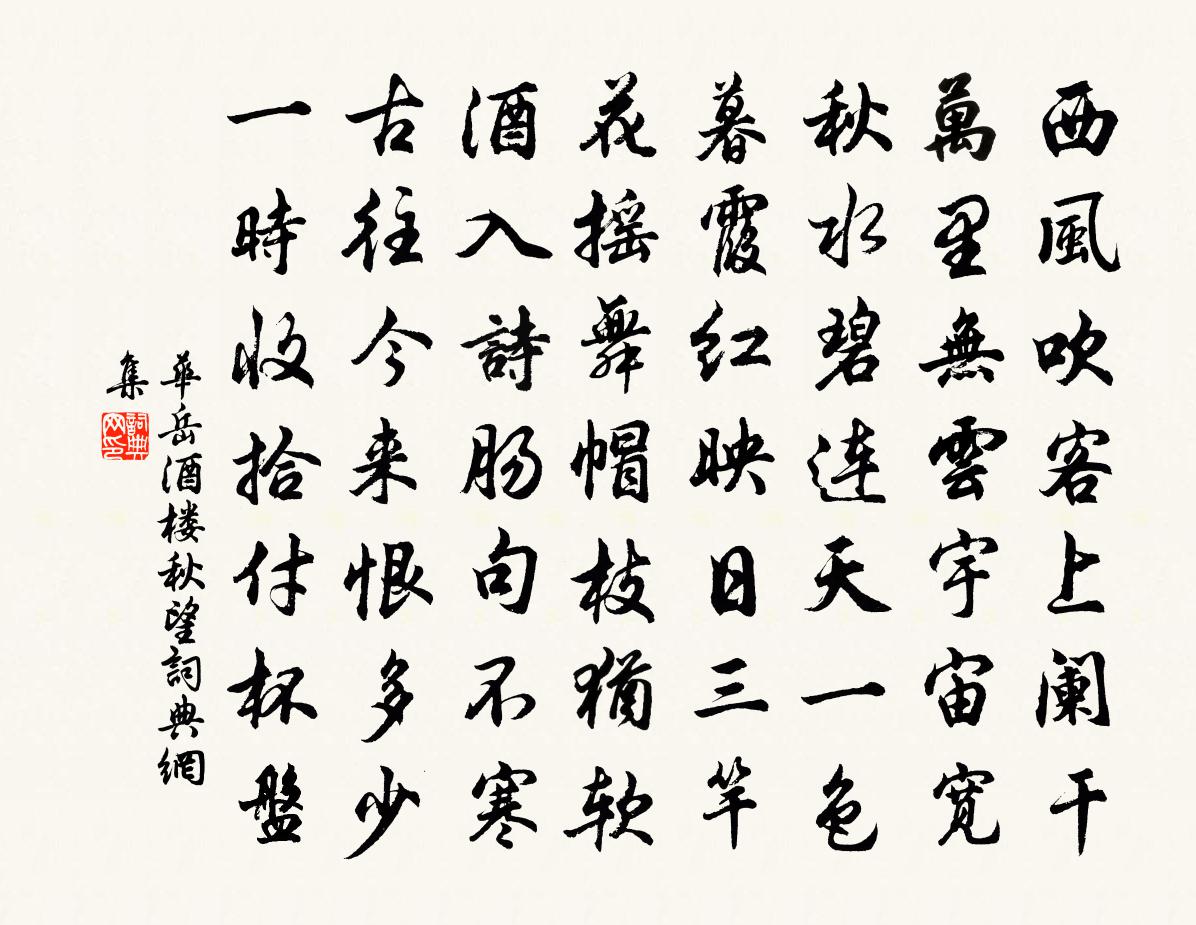 西風吹客上阑干
萬里無雲宇宙寛
秋水碧连天一色
暮霞红映日三竿
花摇舞帽枝猶软
酒入詩肠句不寒
古往今来恨多少
一時收拾付杯盤
華岳酒楼秋望詞典網
集
詞典
网印